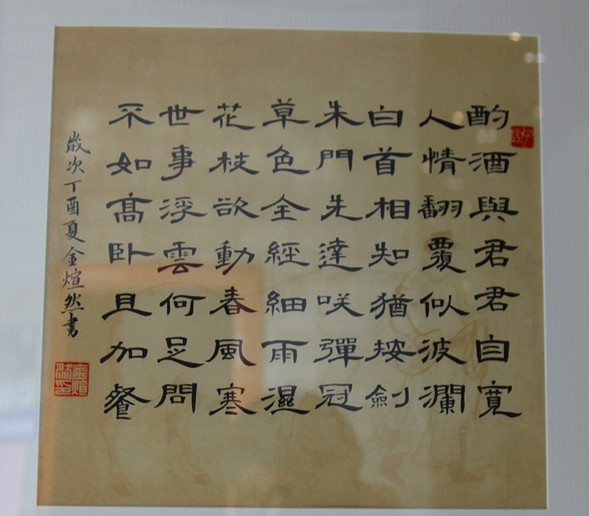 酌酒與君君自寬
人情翻覆似波瀾
白首相知猶按劍
朱門先達咲彈冠
草色全經細雨濕
花枝欲動春風寒
世事浮雲何足問
不如高卧且加餐
歲次丁酉夏金煊然書